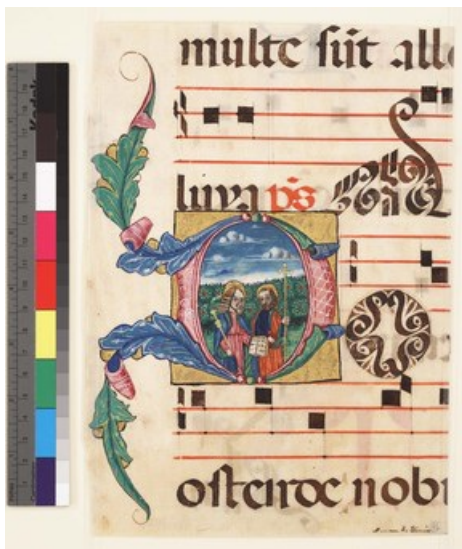 multe sūt alle
luya ps
D O
ostende nobi